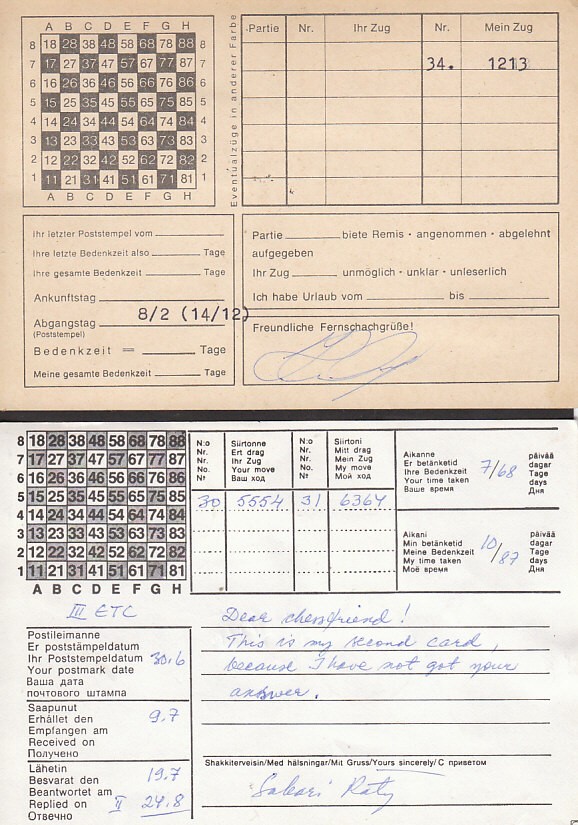 A B C D E F G H
8 18 28 38 48 58 68 78 88 8
7 17 27 37 47 57 67 77 87 7
6 16 26 36 46 56 66 76 86 6
5 15 25 35 45 55 65 75 85 5
4 14 24 34 44 54 64 74 84 4
3 13 23 33 43 53 63 73 83 3
2 12 22 32 42 52 62 72 82 2
1 11 21 31 41 51 61 71 81 1
A B C D E F G H
Eventualzüge in anderer Farbe
Partie Nr. Ihr Zug Nr. Mein Zug
34. 1213
Ihr letzter Poststempel vom
Ihre letzte Bedenkzeit also Tage
Ihre gesamte Bedenkzeit Tage
Ankunftstag
Abgangstag 8/2 (14/12)
(Poststempel)
Bedenkzeit = Tage
Meine gesamte Bedenkzeit Tage
Partie biete Remis · angenommen · abgelehnt
aufgegeben
Ihr Zug unmöglich · unklar · unleserlich
Ich habe Urlaub vom bis
Freundliche Fernschachgrüße!
8 18 28 38 48 58 68 78 88
7 17 27 37 47 57 67 77 87
6 16 26 36 46 56 66 76 86
5 15 25 35 45 55 65 75 85
4 14 24 34 44 54 64 74 84
3 13 23 33 43 53 63 73 83
2 12 22 32 42 52 62 72 82
1 11 21 31 41 51 61 71 81
A B C D E F G H
N:o Siirtonne N:o Siirtoni
Nr. Ert drag Nr. Mitt drag
Nr. Ihr Zug Nr. Mein Zug
No. Your move No. My move
№ Ваш ход № Мой ход
30 5554 31 6364
Aikanne päivää
Er betänketid dagar
Ihre Bedenkzeit 7/68 Tage
Your time taken days
Ваше время Дня
Aikani päivää
Min betänketid dagar
Meine Bedenkzeit 10/87 Tage
My time taken days
Моё время Дня
III ETC
Postileimanne
Er poststämpeldatum
Ihr Poststempeldatum 30.6
Your postmark date
Ваша дата
почтового штампа
Saapunut
Erhållet den 9.7
Empfangen am
Received on
Получено
Lähetin
Besvarat den 19.7
Beantwortet am
Replied on II 24.8
Отвечено
Dear chessfriend!
This is my second card,
because I have not got your
answer.
Shakkiterveisin/Med hälsningar/Mit Gruss/Yours sincerely/С приветом
Sakari Räty